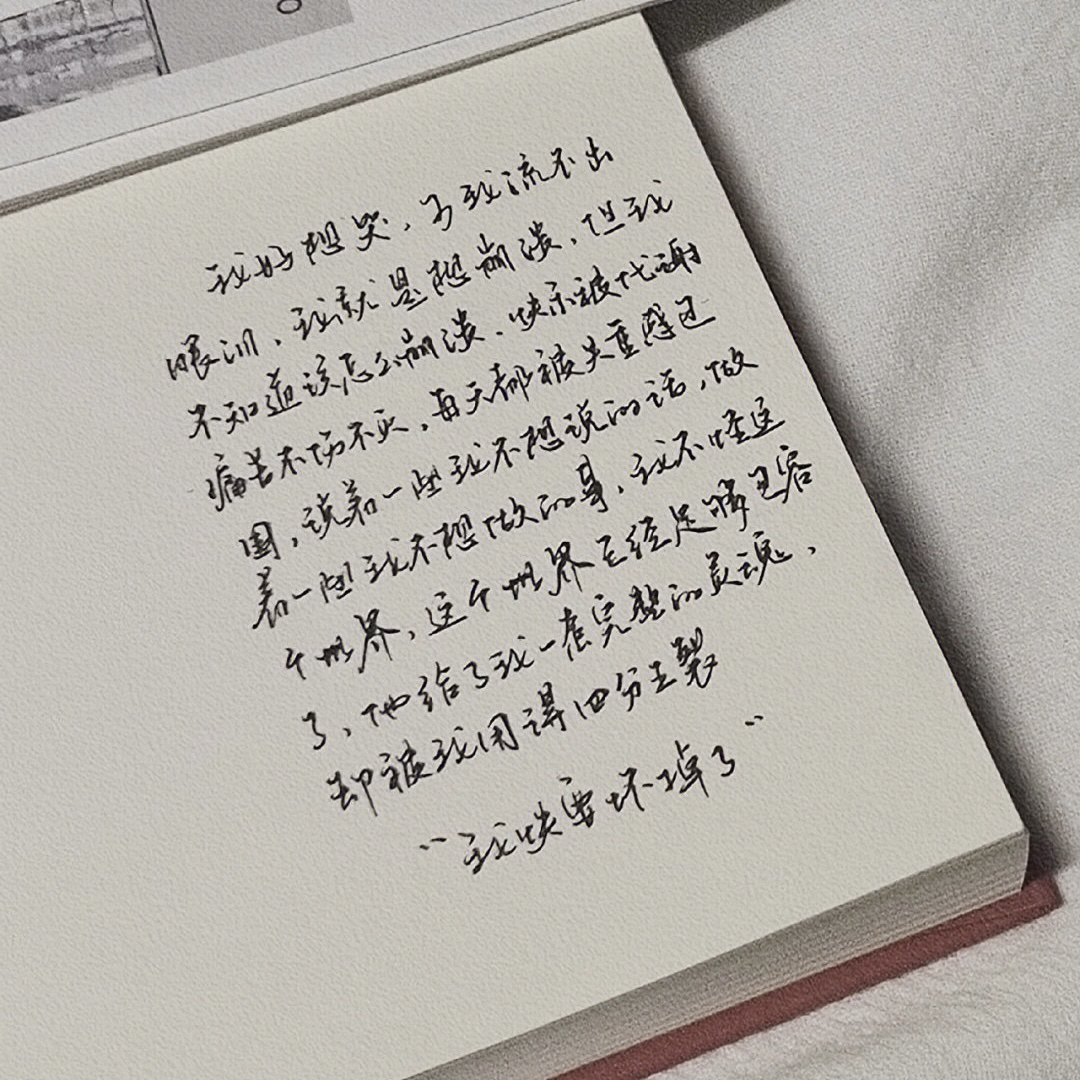 我好想哭，可我流不出
眼泪、我就是想崩溃、但我
不知道该怎么崩溃、快乐被代谢
痛苦不物不灭，每天都被失重感包
围，说着一些我不想说的话，做
着一些我不想做的事、我不怪这
个世界，这个世界已经足够包容
了、他给了我一套完整的灵魂、
却被我用得四分五裂
“我快要坏掉了”